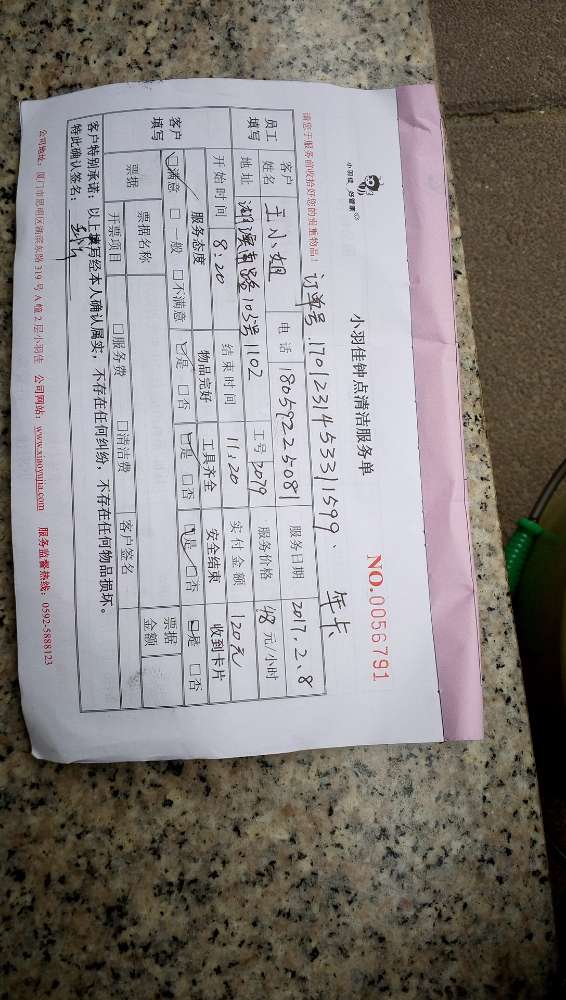 小羽佳 好管家
小羽佳钟点清洁服务单
NO.0056791
订单号.17012314533 1599. 年卡
请您于服务前收拾好您的贵重物品！
员工填写 客户姓名 王小姐 电话 18659225081 服务日期 2017.2.8
地址 湖滨南路103号1102 工号 3079 服务价格 48 元/小时
开始时间 8:20 结束时间 11:20 实付金额 120元
客户填写 服务态度 物品完好 工具齐全 安全结束 收到卡片
☑满意 □一般 □不满意 ☑是 □否 ☑是 □否 ☑是 □否 ☑是 □否
票据 票据名称 客户签名 票据金额
开票项目 □服务费 □清洁费
客户特别承诺：以上填写经本人确认属实，不存在任何纠纷，不存在任何物品损坏。
特此确认签名：
公司地址：厦门市思明区湖滨东路319号A幢2层小羽佳 公司网站：www.xiaoyujia.com 服务监督热线：0592-5888123